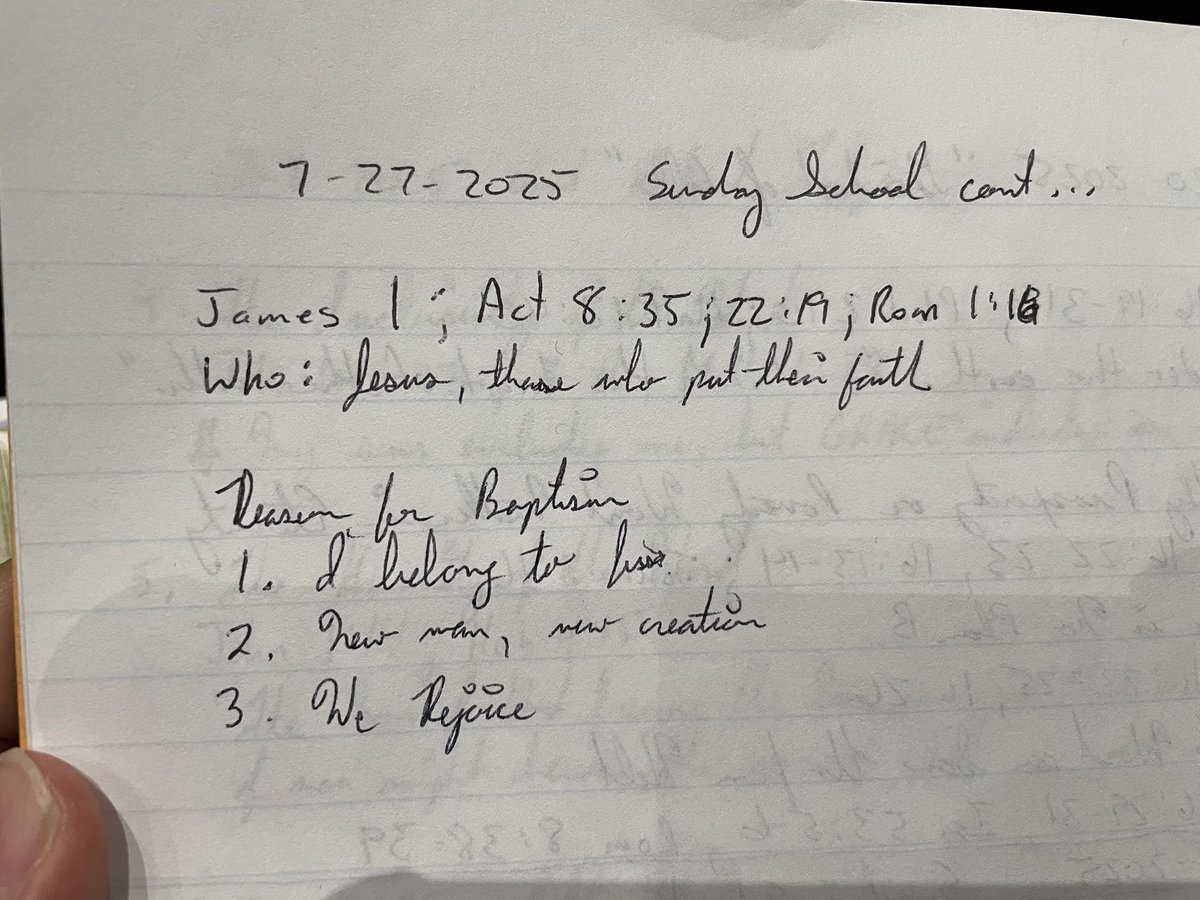 7-27-2025 Sunday School cont...
James 1; Act 8:35; 22:19; Rom 1:16
Who: Jesus, those who put their faith
Reason for Baptism
1. I belong to
2. New man, new creation
3. We Rejoice